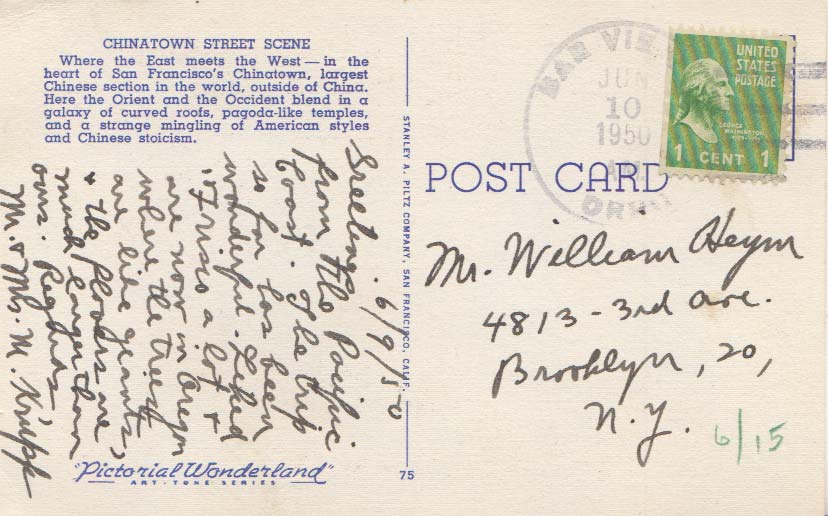 CHINATOWN STREET SCENE
Where the East meets the West — in the
heart of San Francisco's Chinatown, largest
Chinese section in the world, outside of China.
Here the Orient and the Occident blend in a
galaxy of curved roofs, pagoda-like temples,
and a strange mingling of American styles
and Chinese stoicism.
6/9/50
Greetings
from the Pacific
Coast. The trip
so far has been
wonderful. Liked
'Frisco a lot &
are now in Oregon
where the trees
are like giants,
& the flowers are
much larger than
ours. Regards,
Mr. & Mrs. M. Krupp
"Pictorial Wonderland"
ART-TONE SERIES
75
STANLEY A. PILTZ COMPANY, SAN FRANCISCO, CALIF.
POST CARD
BAR VIE
JUN
10
1950
AM
UNITED
STATES
POSTAGE
GEORGE
WASHINGTON
1 CENT 1
Mr. William Heym
4813 - 3rd Ave.
Brooklyn, 20,
N.Y.
6/15